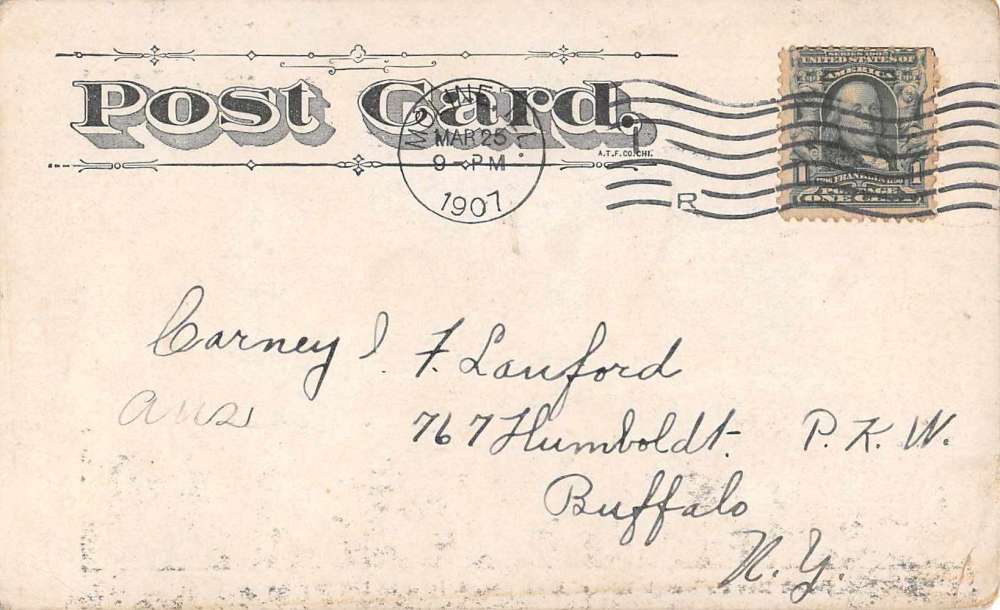 Post Card.
A.T.F. CO. CHI.
MAR 25
9 - PM
1907
R
SERIES 1902
UNITED STATES OF
AMERICA
1 FRANKLIN 1
POSTAGE
ONE CENT
Carney I. F. Lanford
ans
767 Humboldt. P.K.W.
Buffalo
N.Y.